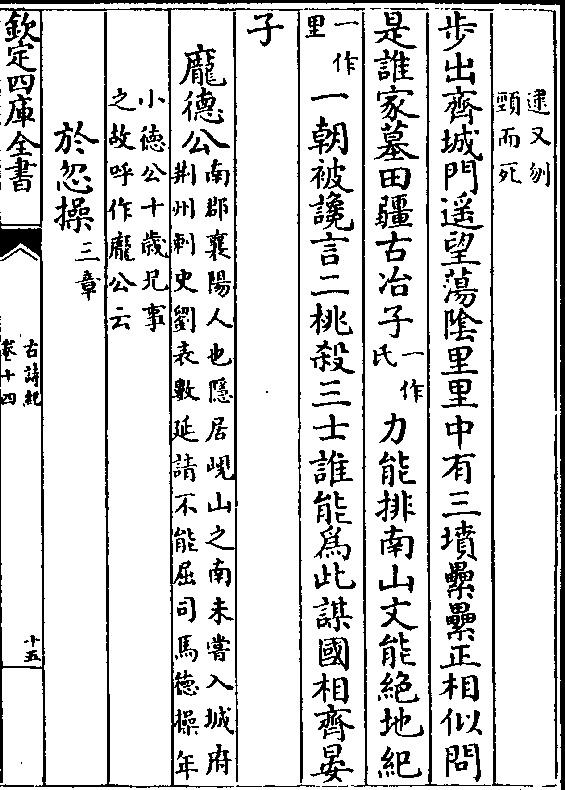 逮又刎
頸而死
步出齊城門遥望蕩陰里里中有三墳纍纍正相似問
是誰家墓田疆古冶子
一作
氏
力能排南山文能絶地紀
一作
里
一朝被讒言二桃殺三士誰能爲此謀國相齊晏
子
龐德公
南郡襄陽人也隱居峴山之南未嘗入城府
荆州刺史劉表數延請不能屈司馬德操年
小德公十歳兄事
之故呼作龐公云
於忽操
三章
欽定四庫全書
古詩紀
卷十四
十五